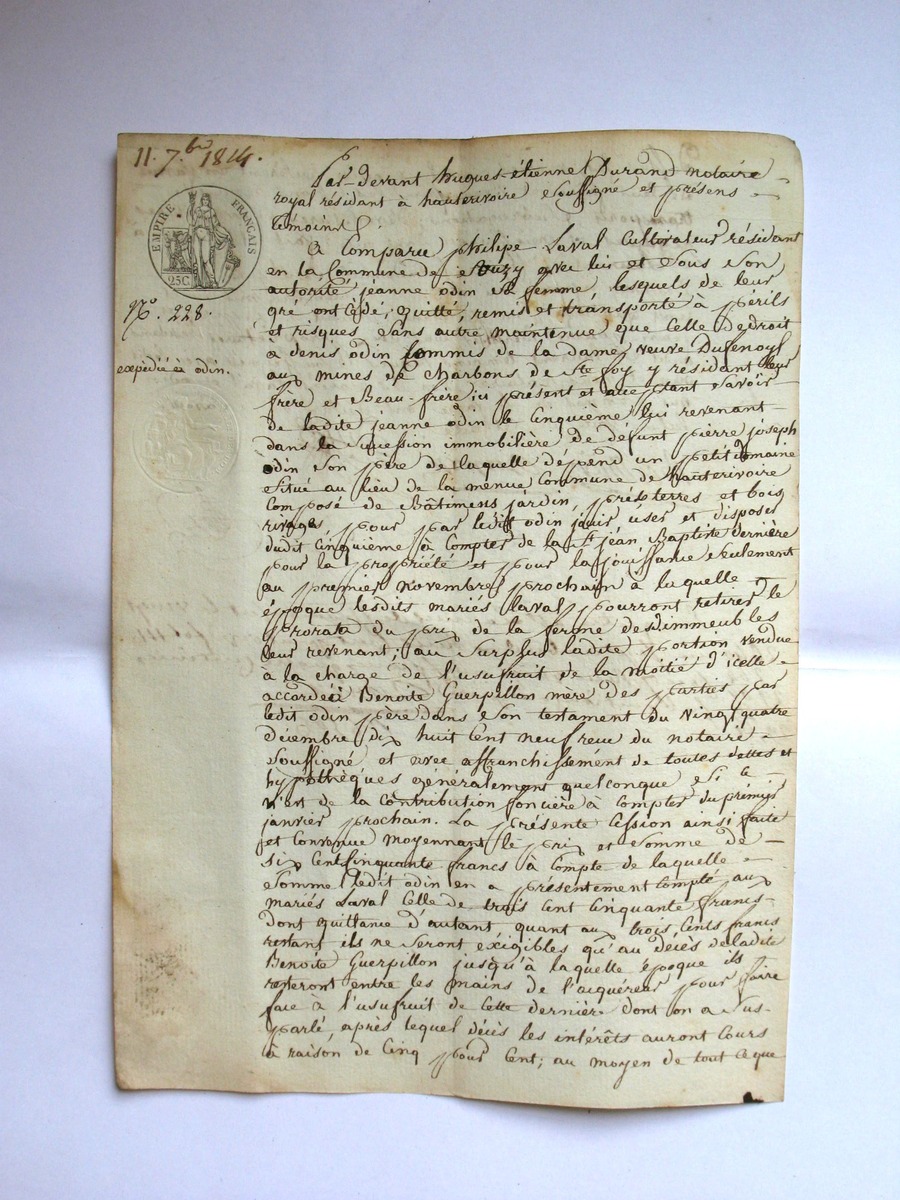 11. 7.bre 1814.
EMPIRE FRANÇAIS
25C
N.o 228.
expédiée à odin.
Par-devant hugues-étienne Durand notaire
royal résidant à hauterivoire soussigné et présens
témoins
a Comparu philipe Laval Cultivateur résidant
en la Commune de Souzy avec lui et sous son
autorité jeanne odin sa femme, lesquels de leur
gré ont Cédé, quitté, remis et transporté à périls
et risques sans autre maintenue que Celle de droit
à denis odin Commis de la dame veuve Dufenoyl
aux mines de Charbons de Ste foy y résidant leur
frère et Beau-frère ici présent et acceptant Savoir
de ladite jeanne odin le Cinquième lui revenant
dans la sucession immobilière de défunt pierre joseph
odin son père de laquelle dépend un petit Domaine
situé au lieu de la menue Commune de hauterivoire
Composé de Bâtimens jardin, prés terres et bois
rivages, pour par ledit odin jouir user et disposer
dudit Cinquième à Compter de la St jean Baptiste dernière
pour la propriété et pour la jouissance seulement
au premier novembre prochain à laquelle
époque lesdits mariés laval pourront retirer le
prorata du prix de la ferme desdimmeubles
leur revenant; au surplus ladite portion vendue
à la charge de l'usufruit de la moitié d'icelle
accordée à Benoite Guerpillon mère des parties par
ledit odin père dans son testament du vingt quatre
décembre dix huit cent neuf reçu du notaire
soussigné et avec affranchissement de toutes dettes et
hypothèques généralement quelconque si ce
n'est de la contribution foncière à compter du premier
janvier prochain. La présente Cession ainsi faite
et Convenue moyennant le prix et somme de
six Cent Cinquante francs à Compte de laquelle
somme ledit odin en a présentement Compté aux
mariés Laval Celle de trois Cent Cinquante francs
dont quittance d'autant, quant aux trois Cents francs
restant ils ne seront exigibles qu'au decès de ladite
Benoite Guerpillon jusqu'à laquelle époque ils
resteront entre les mains de l'aquéreur pour faire
face à l'usufruit de cette dernière dont on a sus-
parlé, après lequel décès les intérêts auront Cours
à raison de Cinq pour Cent; au moyen de tout ce que